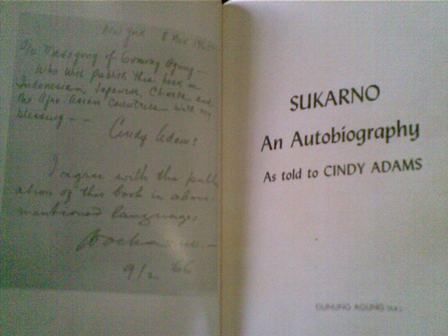 New York 8 Nov 1965
c/o Masagung of Gunung Agung —
Who will publish this book in
Indonesian, Japanese, Chinese and
the Afro-Asian Countries with my
blessing — —
Cindy Adams
I agree with the public-
ation of this book in above-
mentioned languages
Soekarno —
9/2 66
SUKARNO
An Autobiography
As told to CINDY ADAMS
GUNUNG AGUNG